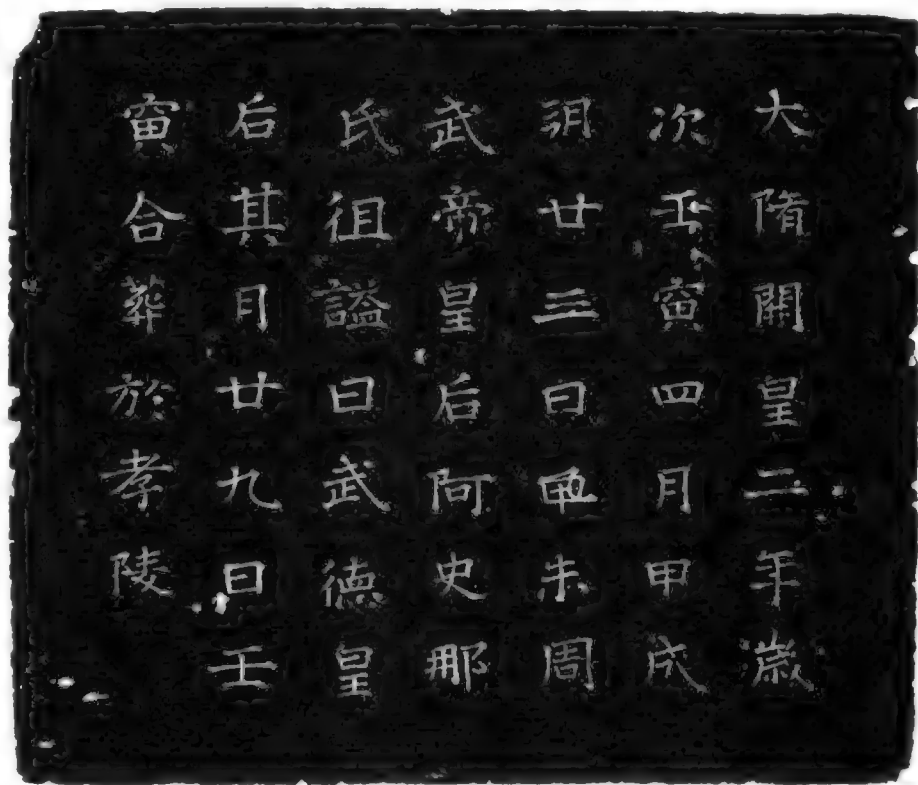 大隋開皇二年歲
次壬寅四月甲戌
朔廿三日未周
武帝皇后阿史那
氏徂謚曰武德皇
后其月廿九日壬
寅合葬於孝陵